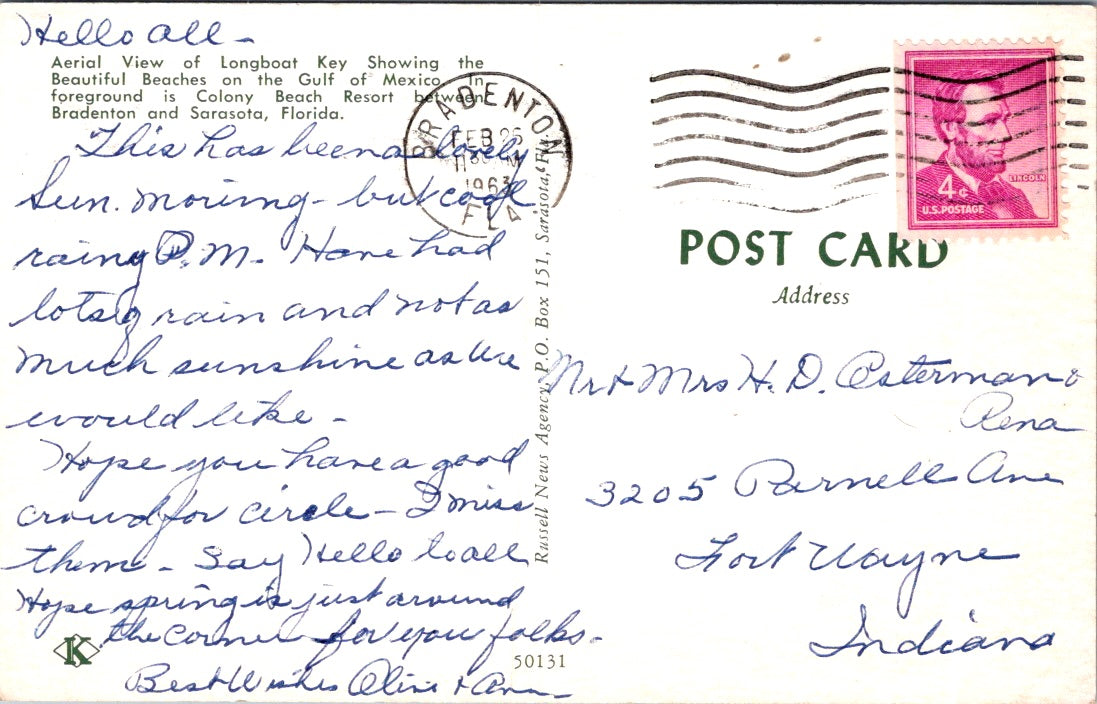 Hello all -
Aerial View of Longboat Key Showing the
Beautiful Beaches on the Gulf of Mexico. In
foreground is Colony Beach Resort between
Bradenton and Sarasota, Florida.
This has been a lovely
Sun. morning - but cool
rainy P.M. - Have had
lots of rain and not as
much sunshine as we
would like -
Hope you have a good
crowd for circle - I miss
them - Say Hello to all
Hope spring is just around
the corner for you folks -
Best Wishes Olive & Ann
K
50131
Russell News Agency, P.O. Box 151, Sarasota, Fla.
BRADENTON
FEB 26
1963
FLA
LINCOLN
4¢
U.S. POSTAGE
POST CARD
Address
Mr & Mrs H. D. Osterman &
Rena
3205 Parnell Ave
Fort Wayne
Indiana